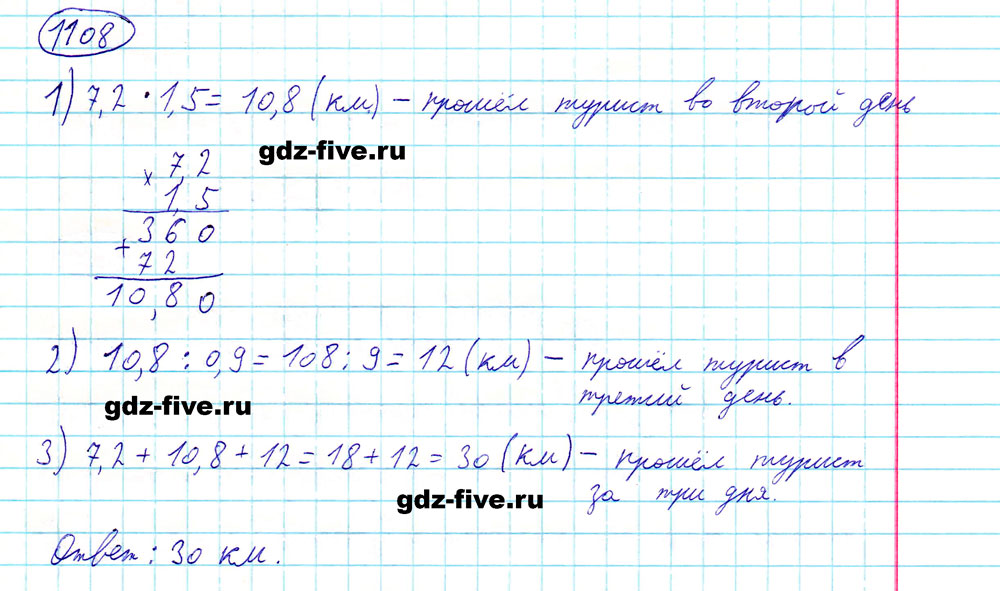 1108
1) 7,2 · 1,5 = 10,8 (км) – прошёл турист во второй день
gdz-five.ru
× 7,2
1,5
360
+ 72
10,80
2) 10,8 : 0,9 = 108 : 9 = 12 (км) – прошёл турист в
третий день.
gdz-five.ru
3) 7,2 + 10,8 + 12 = 18 + 12 = 30 (км) – прошёл турист
за три дня.
gdz-five.ru
Ответ: 30 км.